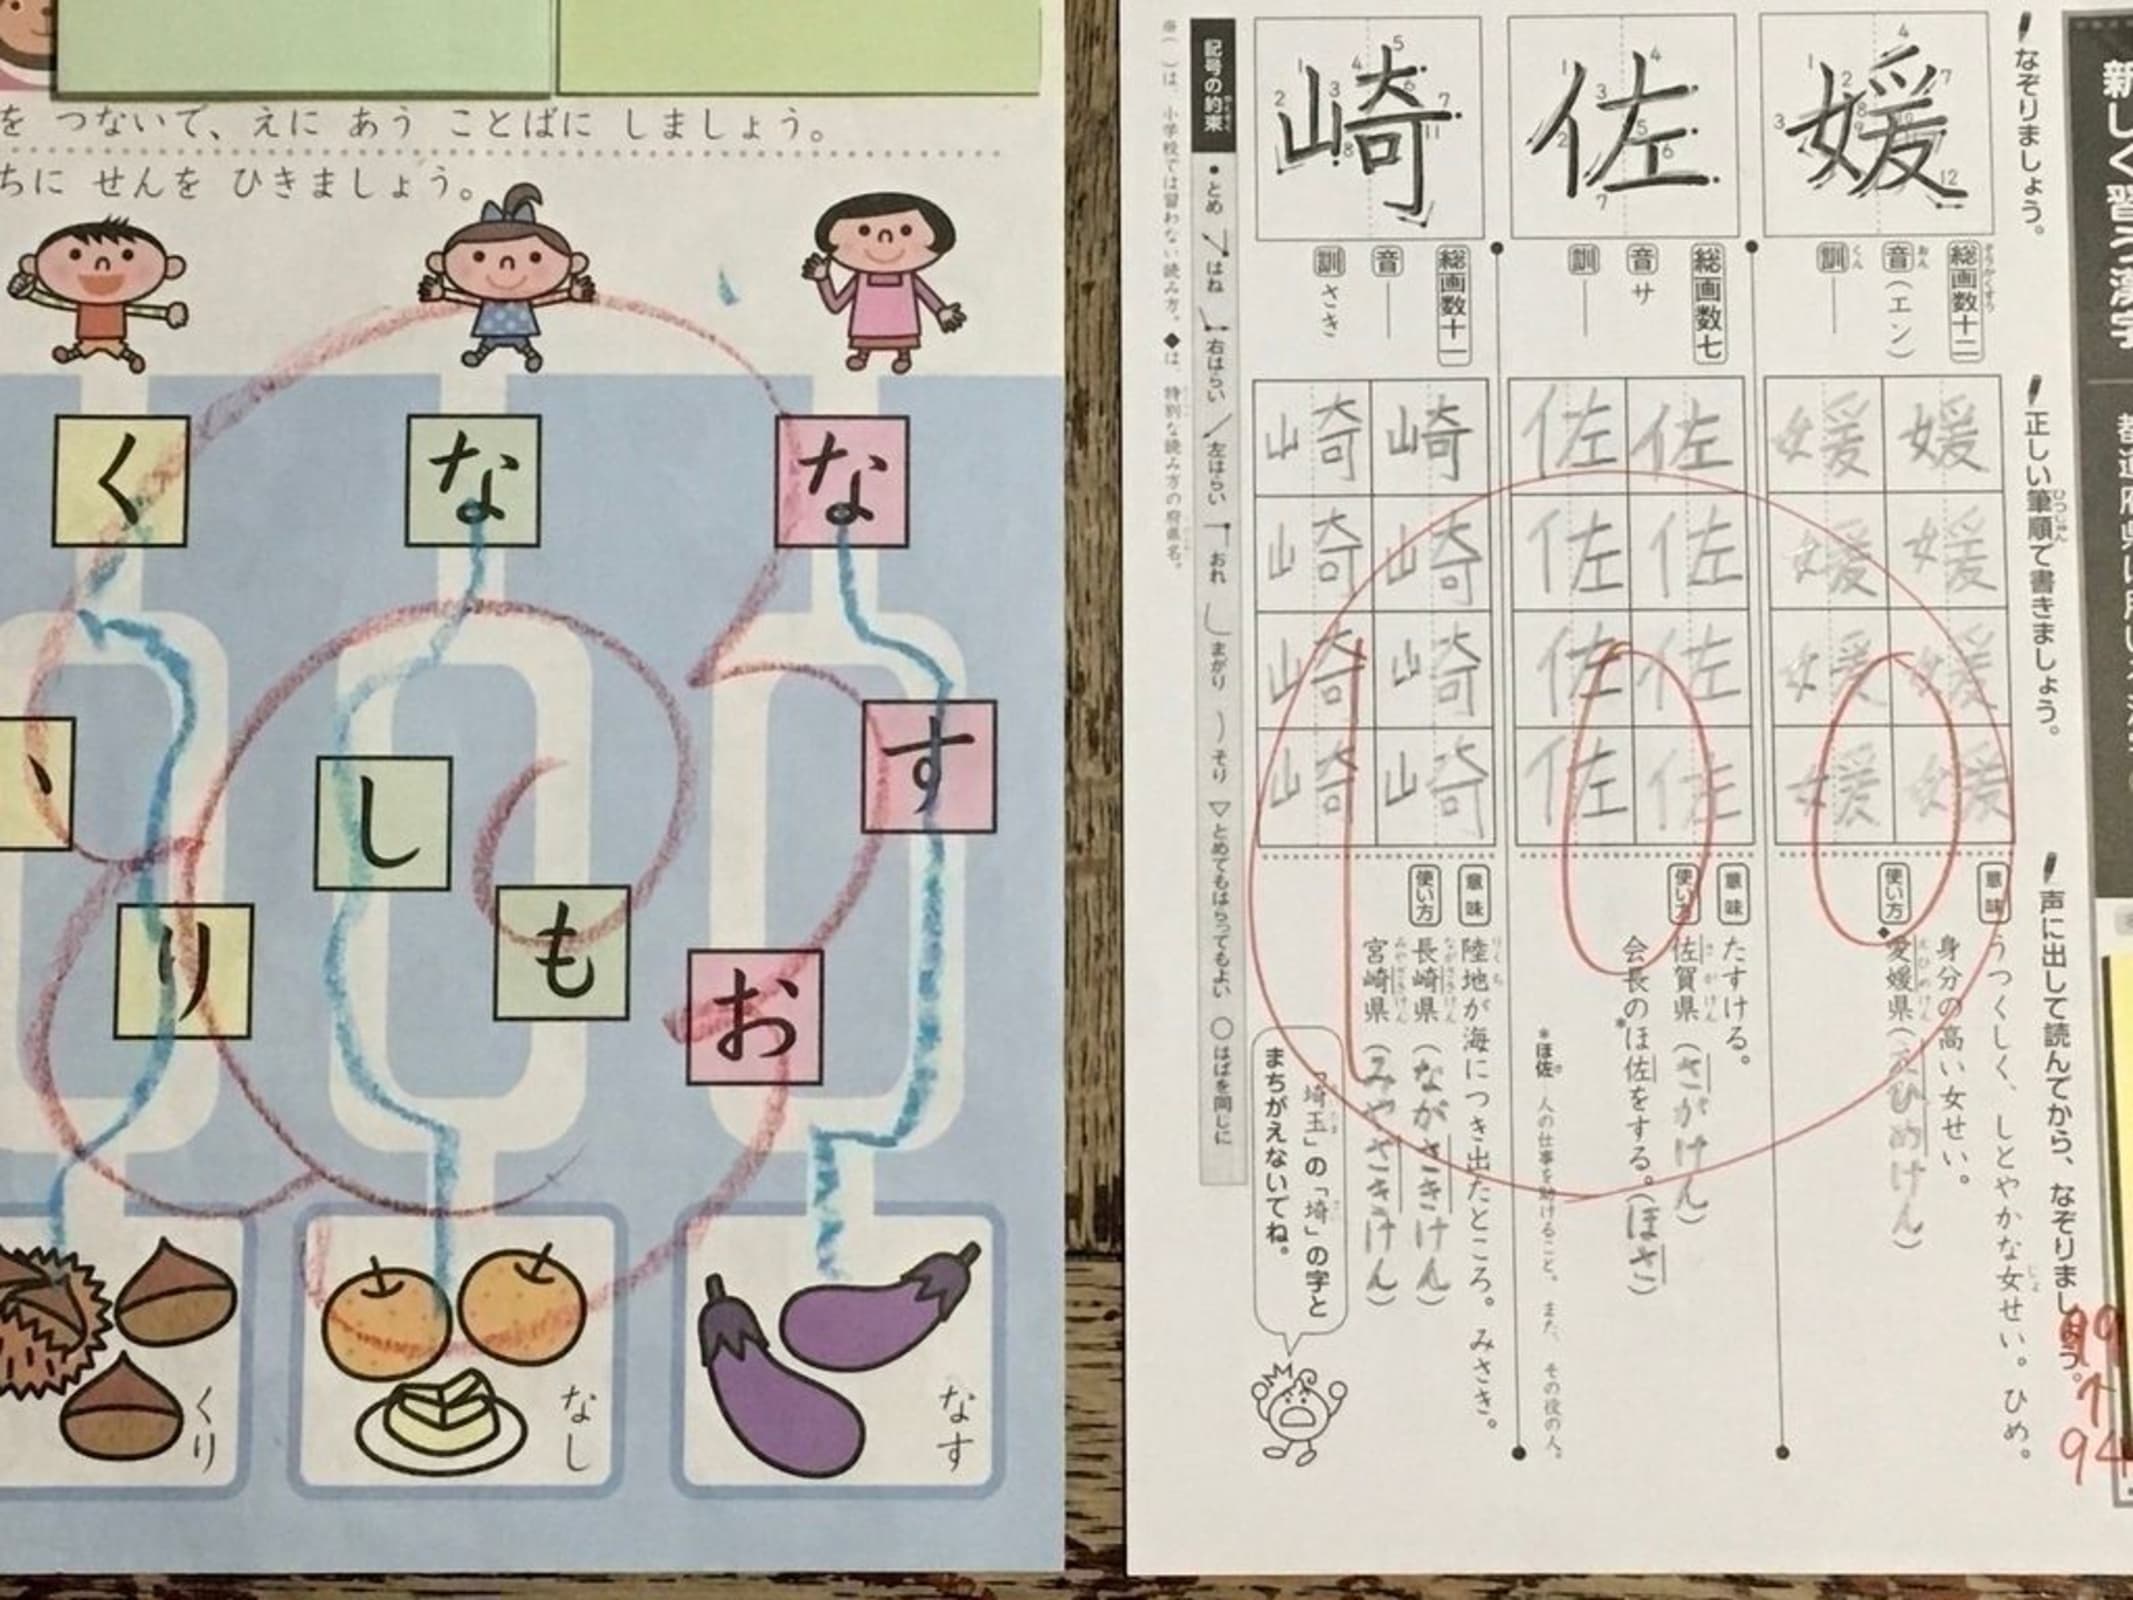 を つないで、えに あう ことばに しましょう。
ちに せんを ひきましょう。
く
な
な
す
し
り
も
お
くり
なし
なす
新しく習う漢字
なぞりましょう。
正しい筆順で書きましょう。
声に出して読んでから、なぞりましょう。
99
↑
94
媛
総画数十二
音(エン)
訓――
媛 媛
媛 媛
媛 媛
媛 媛
意味 うつくしく、しとやかな女せい。ひめ。
身分の高い女せい。
使い方 ◆愛媛県(えひめけん)
佐
総画数七
音 サ
訓――
佐 佐
佐 佐
佐 佐
佐 佐
意味 たすける。
使い方 佐賀県(さがけん)
会長の*ほ佐をする。(ほさ)
*ほ佐 人の仕事を助けること。また、その役の人。
崎
総画数十一
音――
訓 さき
崎 崎
崎 崎
崎 崎
崎 崎
意味 陸地が海につき出たところ。みさき。
使い方 長崎県(ながさきけん)
宮崎県(みやざきけん)
「埼玉」の「埼」の字と
まちがえないでね。
100
記号の約束 •とめ はね 右はらい 左はらい おれ まがり そり ▽とめてもはらってもよい ○はばを同じに
※( )は、小学校では習わない読み方。◆は、特別な読み方の府県名。